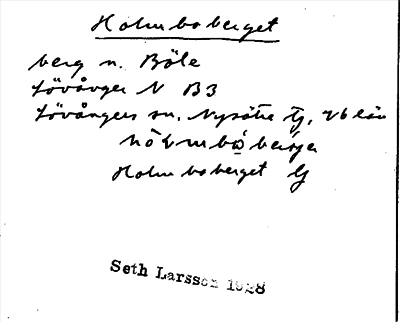 Holmboberget
berg n. Böle
Lövånger N B3
Lövångers sn, Nysätra tg, Vb län
Holmboberget
Seth Larsson 1928